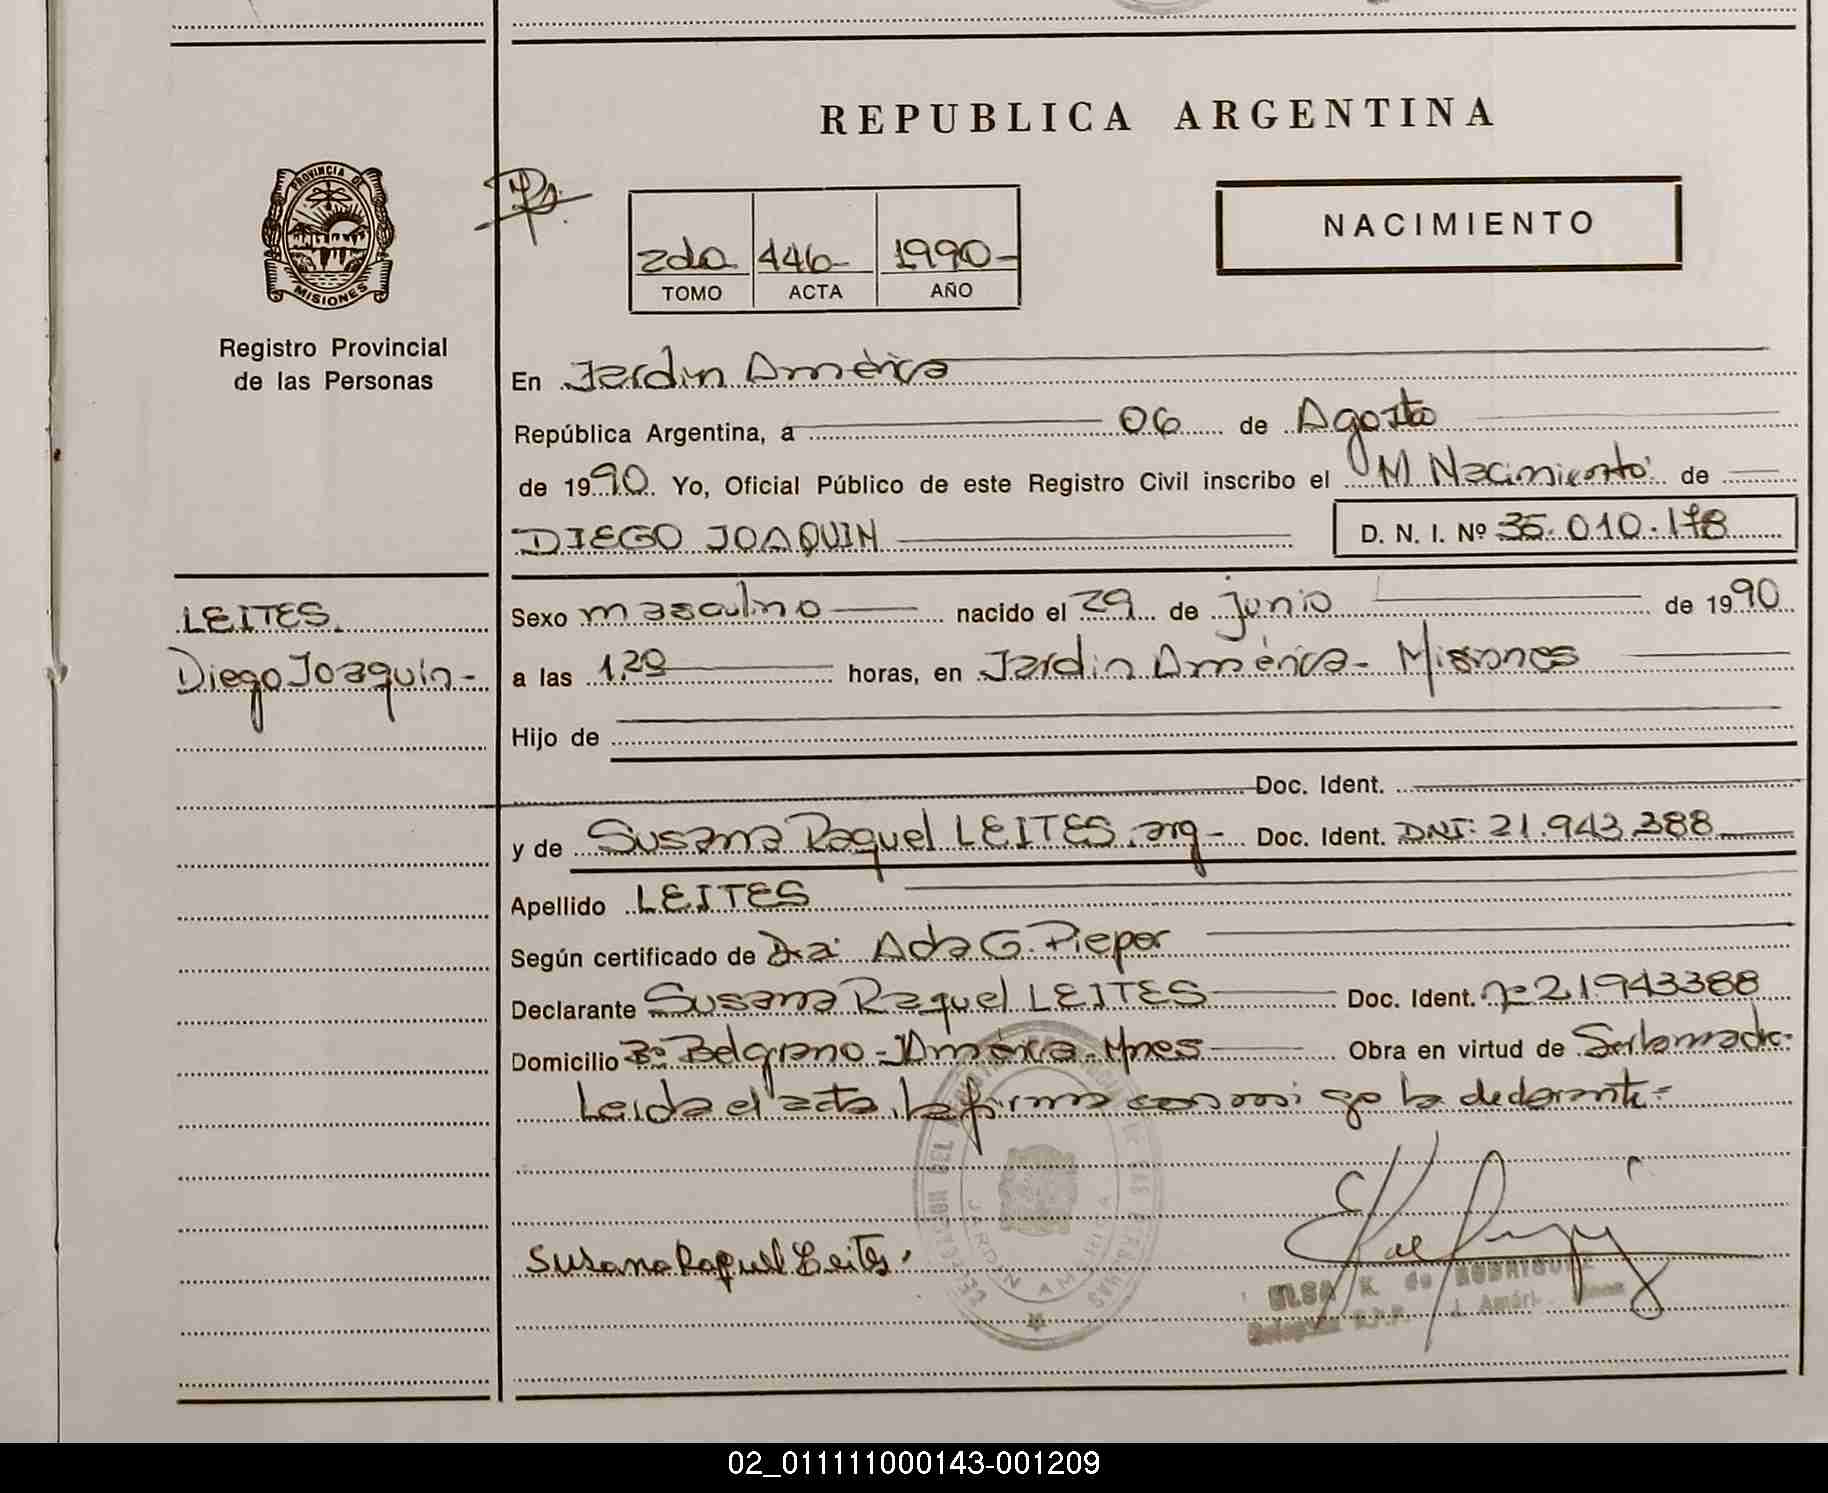 REPUBLICA ARGENTINA
PROVINCIA DE
MISIONES
Registro Provincial
de las Personas
2do 446- 1990-
TOMO ACTA AÑO
NACIMIENTO
En Jardin América
República Argentina, a 06 de Agosto
de 1990. Yo, Oficial Público de este Registro Civil inscribo el Nacimiento de
DIEGO JOAQUIN D. N. I. Nº 35.010.178
LEITES.
Diego Joaquín-
Sexo masculino nacido el 29 de junio de 1990
a las 1,20 horas, en Jardin América- Misiones
Hijo de
Doc. Ident.
y de Susana Raquel LEITES. arg- Doc. Ident. DNI: 21.943.388
Apellido LEITES
Según certificado de Dra: Ada G. Pieper
Declarante Susana Raquel LEITES Doc. Ident. nº 21943388
Domicilio Bº Belgrano-J América-Mnes Obra en virtud de Ser la madre.
Leida el acta, la firma conmigo la declarante=
JARDIN AMERICA
Susana Raquel Leites.
ELSA K. de RODRIGUEZ
02_011111000143-001209